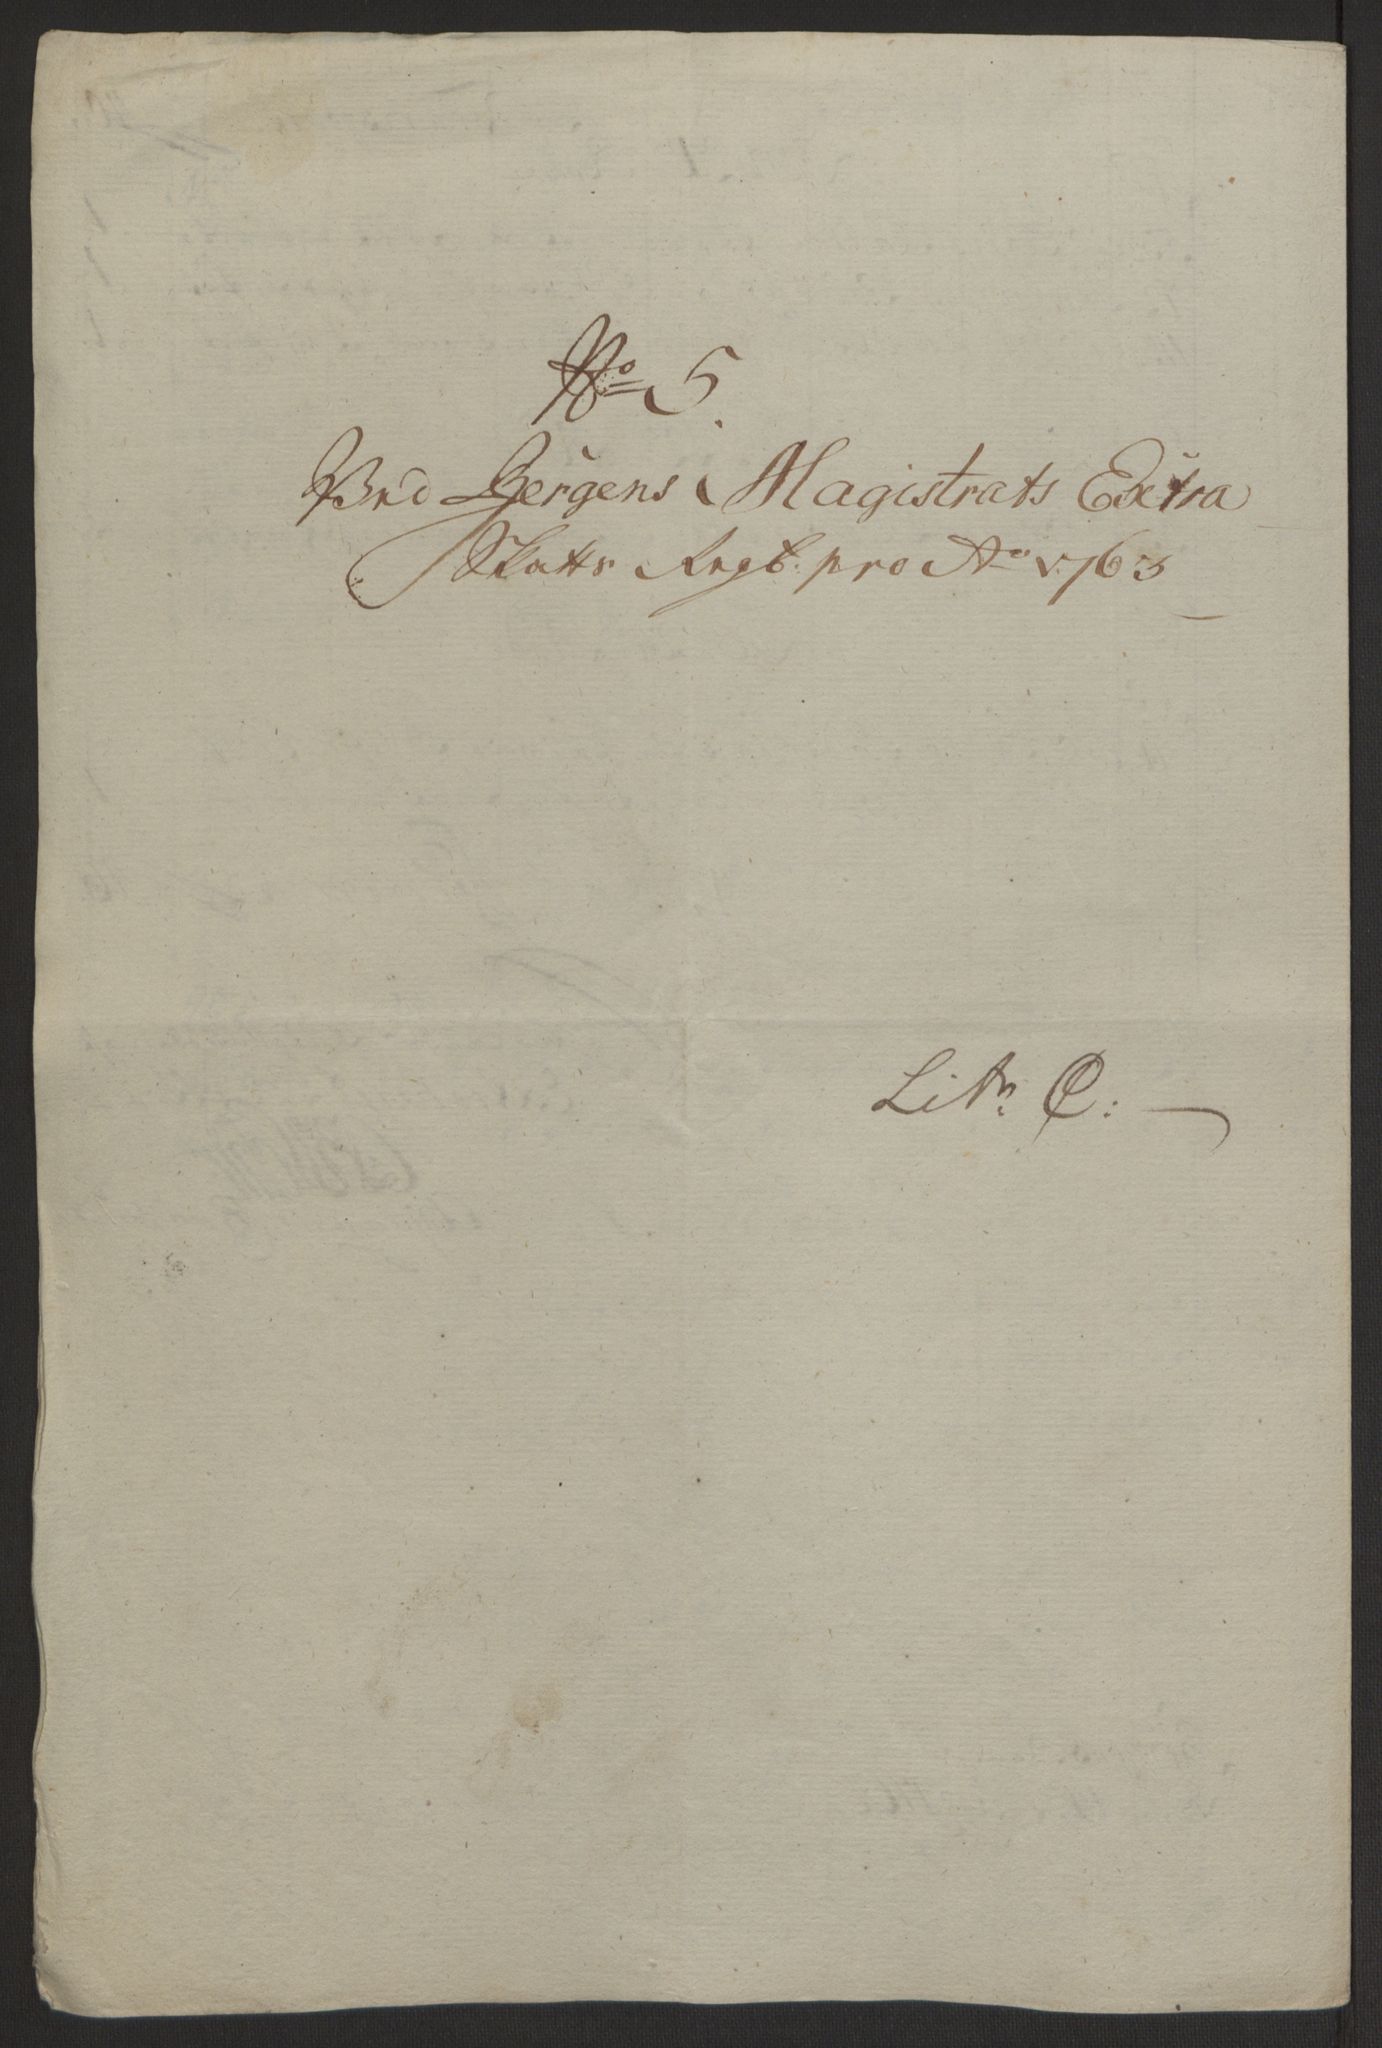 No 5.
Ved Bergens Magistrats Extra
Skatts Regb. pro Ao 1763
Litr. C: